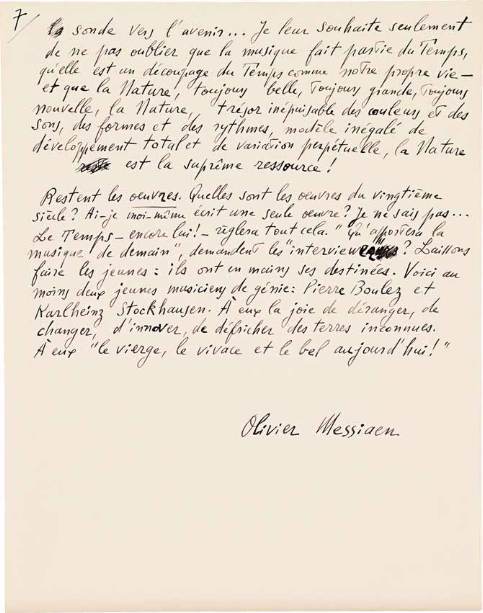 7
sonde vers l'avenir... Je leur souhaite seulement
de ne pas oublier que la musique fait partie du Temps,
qu'elle est un découpage du Temps comme notre propre vie —
et que la Nature, toujours belle, toujours grande, toujours
nouvelle, la Nature, trésor inépuisable des couleurs et des
sons, des formes et des rythmes, modèle inégalé de
développement total et de variation perpétuelle, la Nature
est la suprême ressource!
Restent les oeuvres. Quelles sont les oeuvres du vingtième
siècle? Ai-je moi-même écrit une seule oeuvre? Je ne sais pas...
Le Temps — encore lui! — règlera tout cela. "Qu'apportera la
musique de demain", demandent les "interviewers"? Laissons
faire les jeunes: ils ont en mains ses destinées. Voici au
moins deux jeunes musiciens de génie: Pierre Boulez et
Karlheinz Stockhausen. À eux la joie de déranger, de
changer, d'innover, de défricher des terres inconnues.
À eux "le vierge, le vivace et le bel aujourd'hui!"
Olivier Messiaen